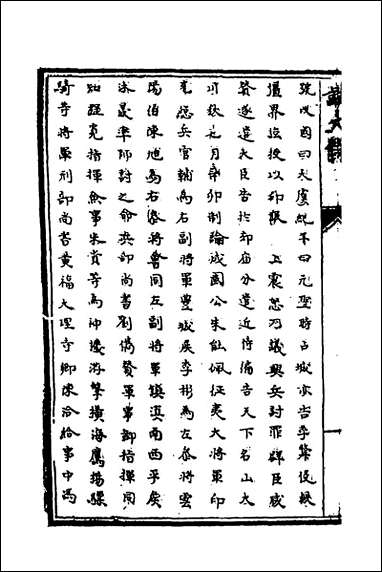 號改國曰大虞紀年曰元聖時占城亦告季犛侵
疆界迫授以印張 上震怒乃議興兵討罪群臣咸
贊遂遣大臣告於郊廟分遣近侍徧告天下名山大
川秋七月辛卯制諭成國公朱能佩征夷大將軍印
充總兵官輔為右副將軍豐城侯李彬為左叅將雲
陽伯陳旭為右叅將會同左副將軍鎮滇南西平侯
沐晟率師討之命兵部尚書劉儁贊軍事都指揮同
知程寬指揮僉事朱貴等為神機游擊橫海鷹揚驃
騎等將軍刑部尚書黃福大理寺卿陳洽給事中馮